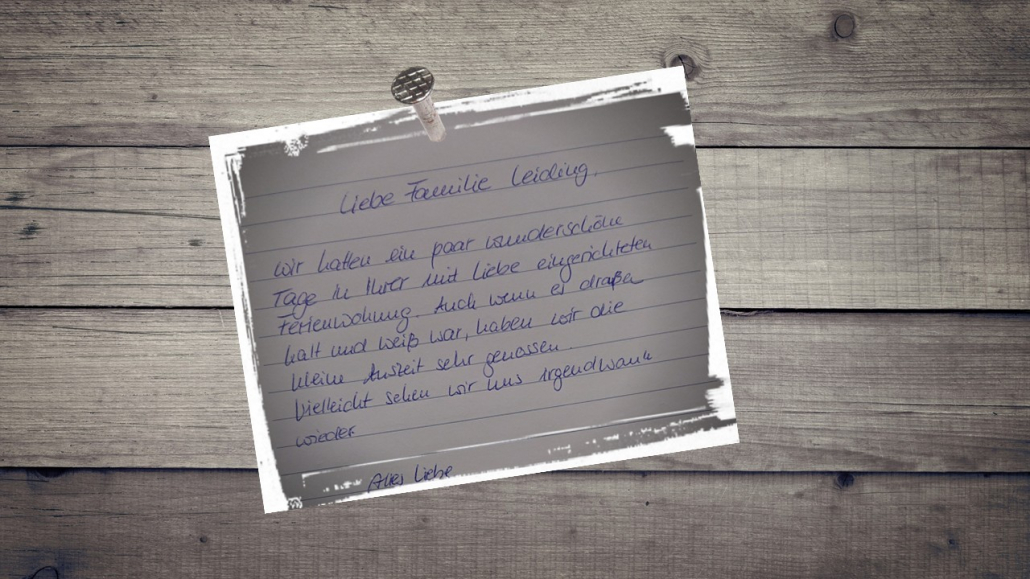 Liebe Familie Leiding,
wir hatten ein paar wunderschöne
Tage in Ihrer mit Liebe eingerichteten
Ferienwohnung. Auch wenn es draßen
kalt und weiß war, haben wir die
kleine Auszeit sehr genossen.
Vielleicht sehen wir uns irgendwann
wieder.
Alles Liebe